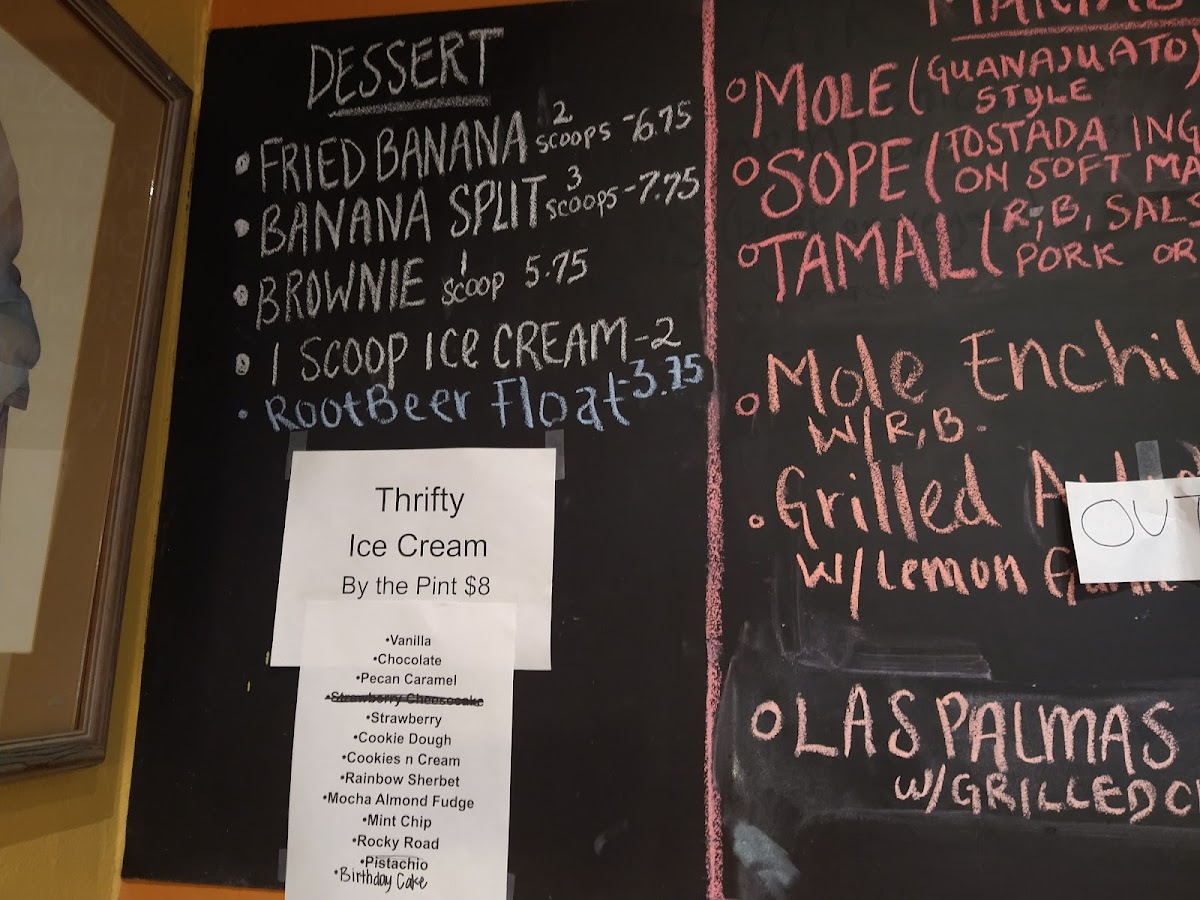 DESSERT
• FRIED BANANA 2 SCOOPS -6.75
• BANANA SPLIT 3 SCOOPS -7.75
• BROWNIE 1 SCOOP 5.75
• 1 SCOOP ICE CREAM-2
• RootBeer Float-3.75
Thrifty
Ice Cream
By the Pint $8
•Vanilla
•Chocolate
•Pecan Caramel
•Strawberry Cheesecake
•Strawberry
•Cookie Dough
•Cookies n Cream
•Rainbow Sherbet
•Mocha Almond Fudge
•Mint Chip
•Rocky Road
•Pistachio
•Birthday Cake
MOLE (GUANAJUATO)
STYLE
SOPE (TOSTADA ING
ON SOFT MA
TAMAL (R, B, SALS
PORK OR
Mole Enchil
W/R, B.
Grilled
W/Lemon
OUT
LAS PALMAS
W/GRILLED C